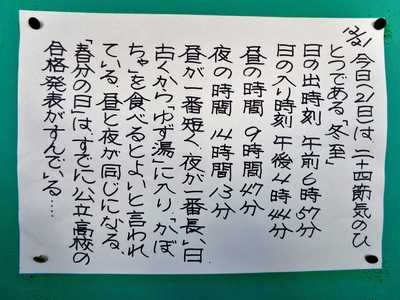 12/21
今日(21日)は、二十四節気のひ
とつである、「冬至」
日の出時刻 午前6時57分
日の入り時刻 午後4時44分
昼の時間 9時間47分
夜の時間 14時間13分
昼が一番短く、夜が一番長い日
古くから「ゆず湯」に入り、「かぼ
ちゃ」を食べるとよいと言われ
ている。昼と夜が同じになる、
「春分の日」は、すでに、公立高校の
合格発表がすんでいる……